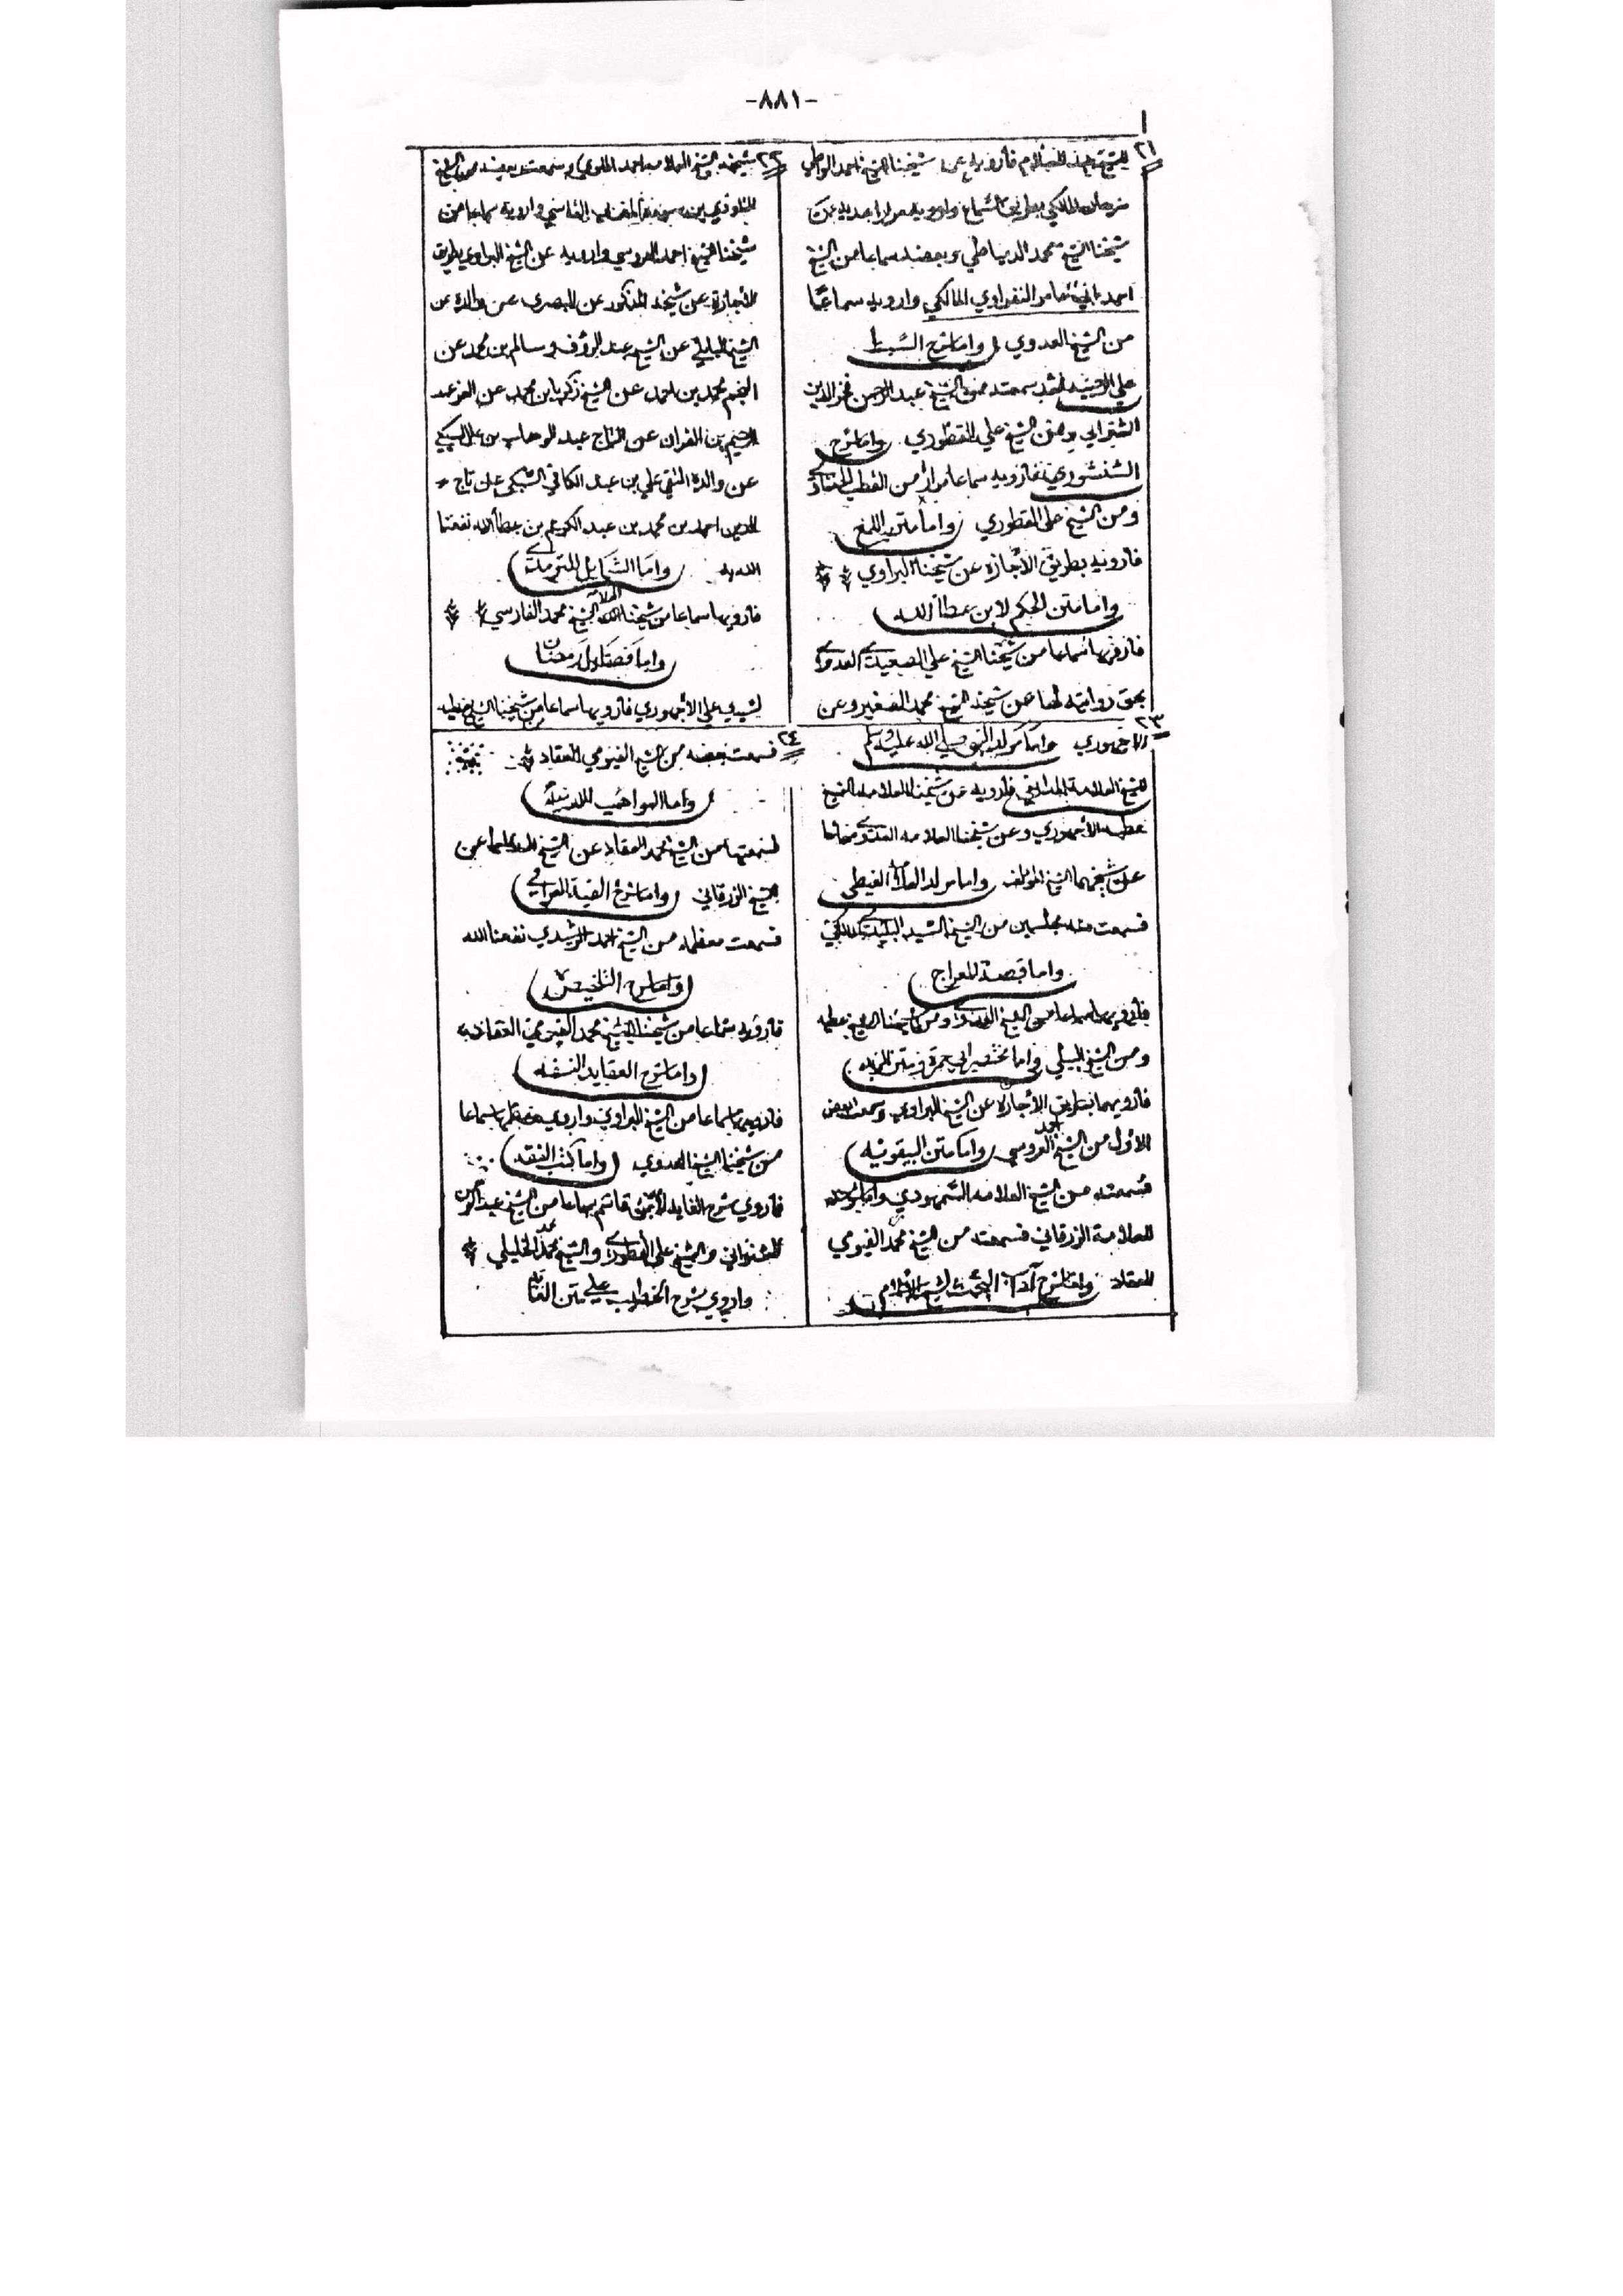 -٨٨١-
٢١
للشيخ عبد السلام فأرويه عن شيخنا الشيخ احمد
المالكي بطريق السماع وارويه عن
شيخنا الشيخ محمد الدمياطي وبعضه سماعا من الشيخ
احمد النفراوي المالكي وارويه سماعا
من الشيخ العدوي واما شرح الشيخ
علي الرحبيه فقد سمعته من الشيخ عبد الرحمن فخر الدين
ومن الشيخ علي القطوري واما شرح
الشنشوري فأرويه سماعا من القطب
ومن الشيخ علي القطوري واما متن اللمع
فأرويه بطريق الأجازة عن شيخنا البراوي
واما متن الحكم لابن عطأ الله
فأرويها سماعا من شيخنا الشيخ علي الصعيدي العدوي
بحق روايته لها عن شيخه الشيخ محمد الصغير وعن
٢٢
شيخه الشيخ العلامه احمد الملوي وسمعت بعضه من الشيخ
الفاسي وارويه سماعا من
شيخنا الشيخ احمد العروسي وارويه عن الشيخ البراوي بطريق
الأجازة عن شيخه المذكور عن البصري عن والده عن
الشيخ البابلي عن الشيخ عبد الرؤف وسالم بن محمد عن
النجم محمد بن احمد عن الشيخ زكريا بن محمد عن العز عبد
الرحيم بن الفرات عن التاج عبد الوهاب بن علي السبكي
عن والده التقي علي بن عبد الكافي السبكي عن تاج
الدين احمد بن محمد بن عبد الكريم بن عطأ الله نفعنا
الله به واما الشمايل للترمذي
فأرويها سماعا من شيخنا العلامه الشيخ محمد الفارسي
واما فضائل رمضان
لسيدي علي الأجهوري فأرويها سماعا من شيخنا الشيخ عطيه
٢٣
الاجهوري واما مولد النبي صلي الله عليه وسلم
للشيخ العلامة المدابغي فأرويه عن شيخنا العلامه الشيخ
عطيه الأجهوري وعن شيخنا العلامه العدوي
عن شيخهما الشيخ المؤلف واما مولد العلامة الغيطي
فسمعت منه مجلسين من الشيخ السيد البليدي المالكي
واما قصة المعراج
فأرويها سماعا من الشيخ العدوي ومن شيخنا الشيخ عطيه
ومن الشيخ البيلي واما مختصر ابي جمرة ومتن الزبد
فأرويهما بطريق الأجازة عن الشيخ البراوي وسمعت بعض
الأول من الشيخ احمد العروسي واما متن البيقونيه
فسمعته من الشيخ العلامه السمهودي واما شرحه
للعلامة الزرقاني فسمعته من الشيخ محمد الفيومي
العقاد واما شرح آداب البحث لشيخ الاسلام
٢٤
فسمعت بعضه من الشيخ الفيومي العقاد
واما المواهب اللدنية
فسمعتها من الشيخ محمد العقاد عن الشيخ
الشيخ الزرقاني واما شرح الفية العراقي
فسمعت معظمه من الشيخ احمد الرشيدي نفعنا الله
واما شرح التلخيص
فأرويه سماعا من شيخنا الشيخ محمد الفيومي العقاد
واما شرح العقايد النسفيه
فأرويها سماعا من الشيخ البراوي واروي بعضها سماعا
من شيخنا الشيخ العدوي واما كتب الفقه
فأروي شرح الغايه لأبن قاسم سماعا من الشيخ عبد الرحمن
والشيخ علي القطوري والشيخ محمد الخليلي
واروي شرح الخطيب علي متن الغاية